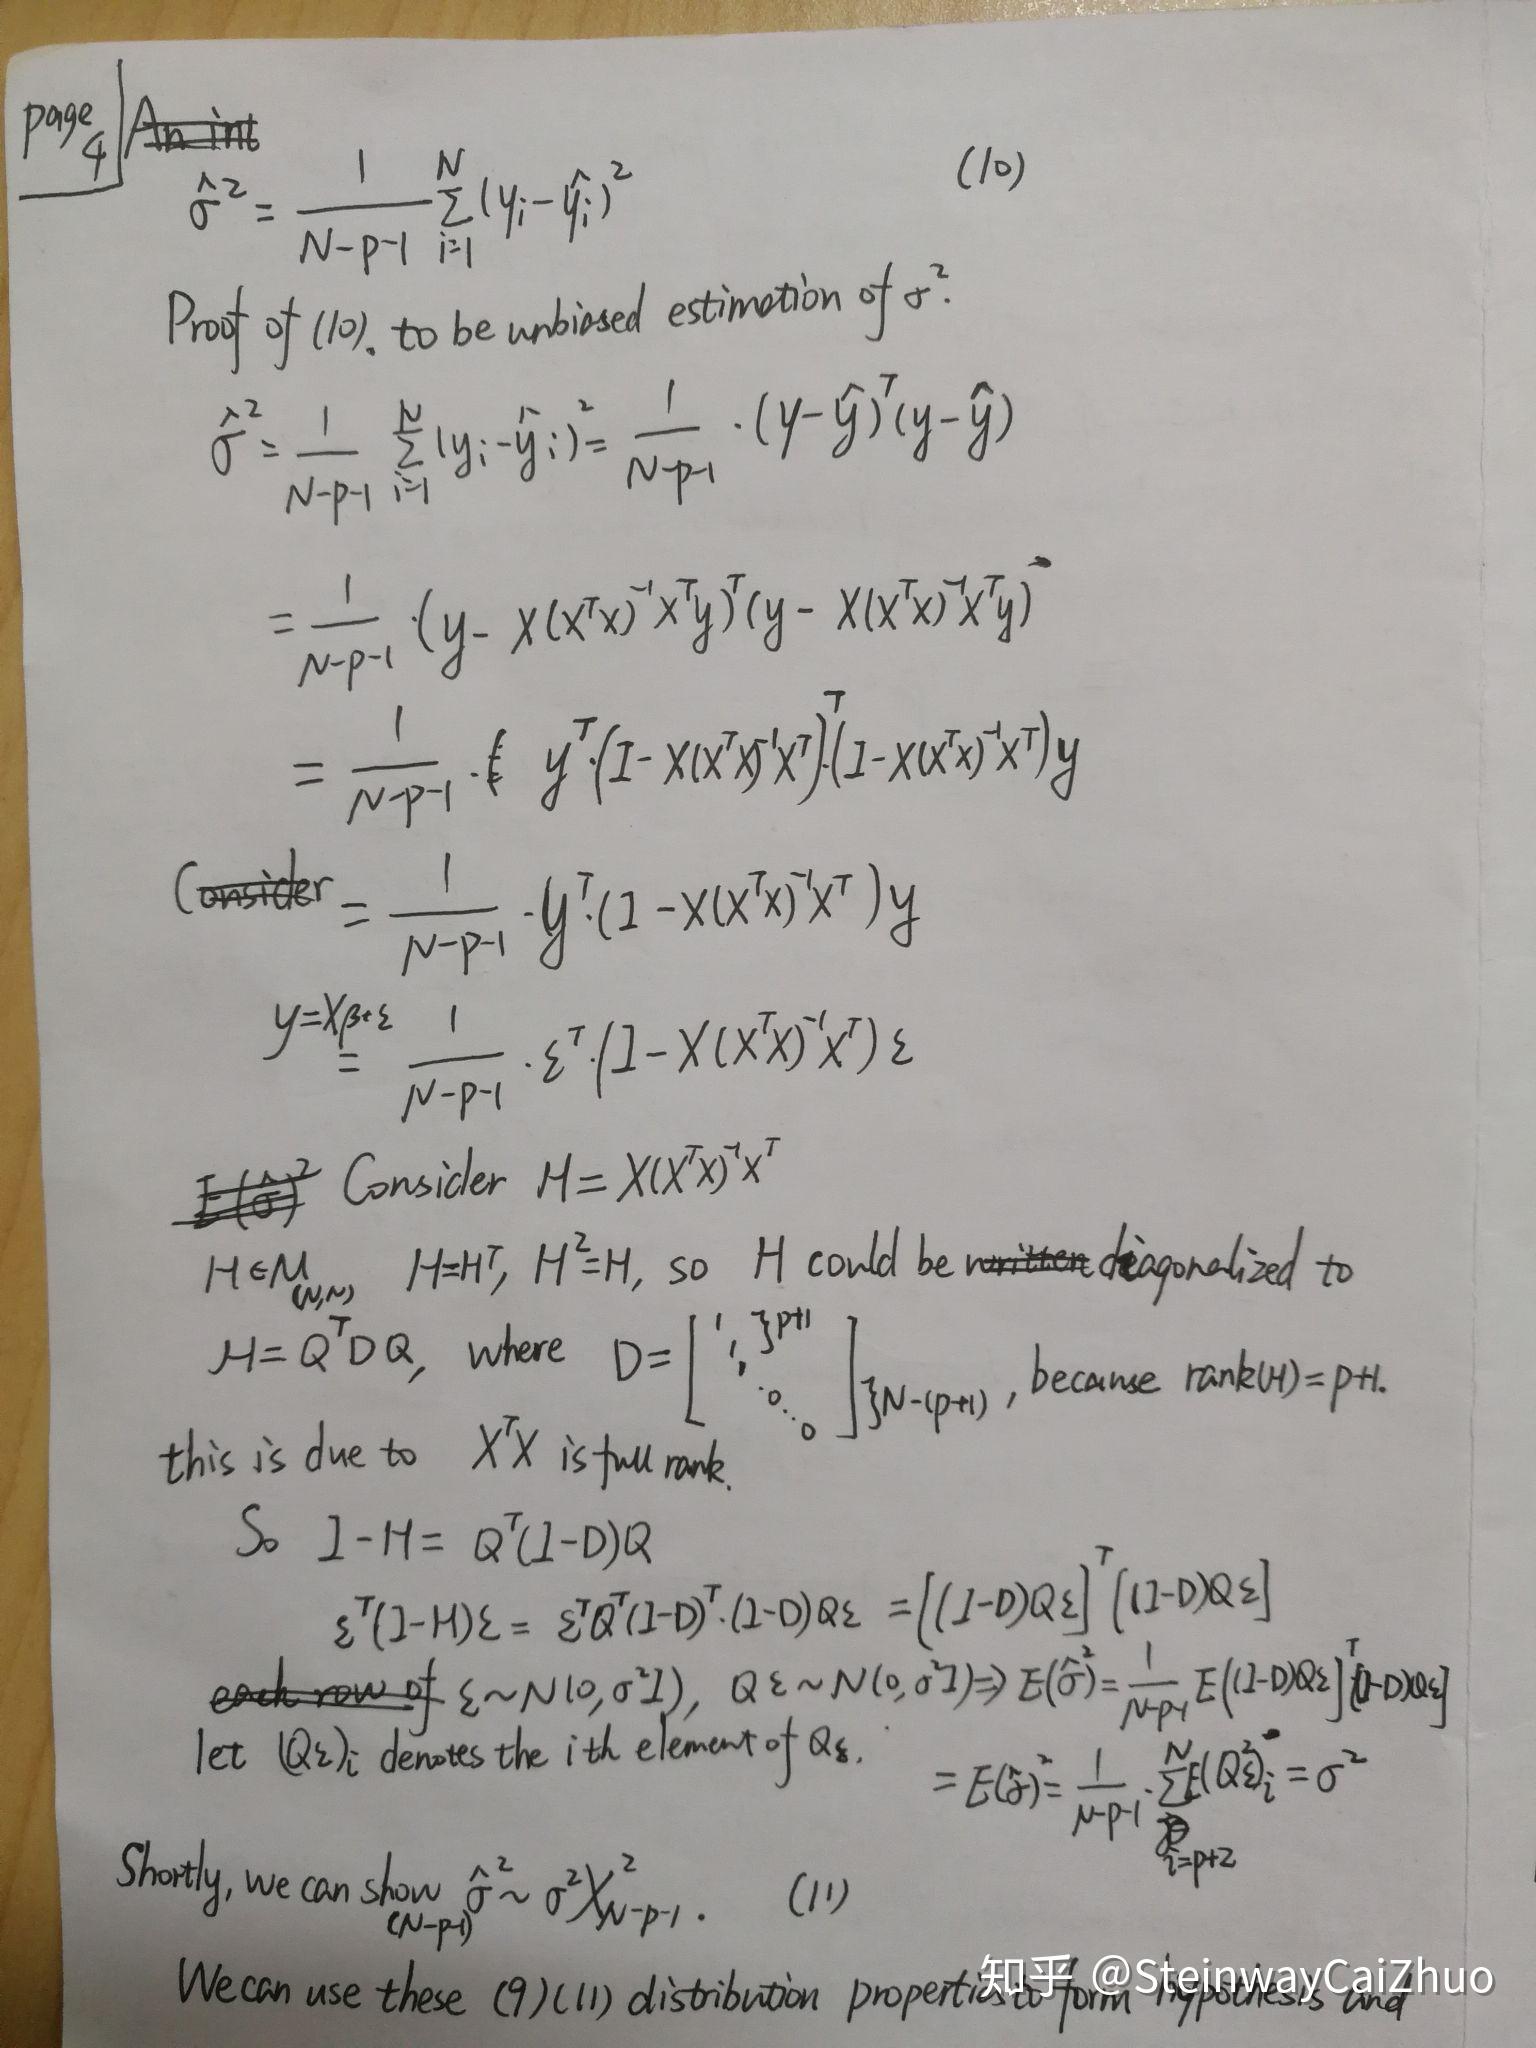 page 4
An int
σ̂² = 1/(N-p-1) Σ_{i=1}^{N} (y_i - ŷ_i)² (10)
Proof of (10). to be unbiased estimation of σ².
σ̂² = 1/(N-p-1) Σ_{i=1}^{N} (y_i - ŷ_i)² = 1/(N-p-1) · (y - ŷ)ᵀ(y - ŷ)
= 1/(N-p-1) · (y - X(XᵀX)⁻¹Xᵀy)ᵀ(y - X(XᵀX)⁻¹Xᵀy)
= 1/(N-p-1) · yᵀ·(I - X(XᵀX)⁻¹Xᵀ)ᵀ·(I - X(XᵀX)⁻¹Xᵀ)y
Consider = 1/(N-p-1) · yᵀ·(I - X(XᵀX)⁻¹Xᵀ)y
y=Xβ+ε = 1/(N-p-1) · εᵀ·(I - X(XᵀX)⁻¹Xᵀ)ε
E(σ̂)² Consider H = X(XᵀX)⁻¹Xᵀ
H∈M_(N,N) H=Hᵀ, H²=H, so H could be written diagonalized to
H = QᵀDQ, where D = [1 1 1 }p+1 0 ... 0] }N-(p+1), because rank(H) = p+1.
this is due to XᵀX is full rank.
So I-H = Qᵀ(I-D)Q
εᵀ(I-H)ε = εᵀQᵀ(I-D)ᵀ·(I-D)Qε = [(I-D)Qε]ᵀ[(I-D)Qε]
each row of ε~N(0,σ²I), Qε~N(0,σ²I) ⇒ E(σ̂²) = 1/(N-p-1) E[(I-D)Qε]ᵀ[(I-D)Qε]
let (Qε)_i denotes the ith element of Qε.
= E(σ̂)² = 1/(N-p-1) · Σ_{i=p+2}^{N} E(Qε)²_i = σ²
Shortly, we can show (N-p-1) σ̂² ~ σ²χ²_{N-p-1}. (11)
We can use these (9)(11) distribution properties to form hypothesis and
知乎 @SteinwayCaiZhuo